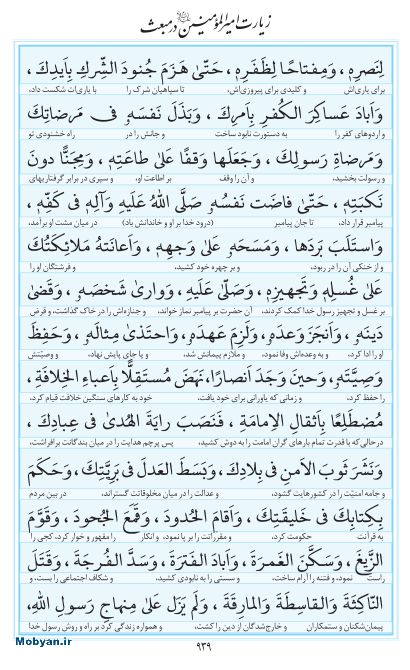 زیارت امیرالمؤمنین در مبعث
لِنَصرِهِ، وَمِفتاحًا لِظَفَرِهِ، حَتّىٰ هَزَمَ جُنودَ الشِّركِ بِاَيدِكَ،
برای یاری‌اش و کلیدی برای پیروزی‌اش، تا سپاهیان شرک را با یاری‌ات شکست داد،
وَاَبادَ عَساكِرَ الكُفرِ بِاَمرِكَ، وَبَذَلَ نَفسَهُ فى مَرضاتِكَ
و اردوهای کفر را به دستورت نابود ساخت و جانش را در راه خشنودی تو
وَمَرضاةِ رَسولِكَ، وَجَعَلَها وَقفًا عَلىٰ طاعَتِهِ، وَمِجَنًّا دونَ
و رسولت بخشید، و آن را وقف بر اطاعت او، و سپری در برابر گرفتاریهای
نَكبَتِهِ، حَتّىٰ فاضَت نَفسُهُ صَلَّى اللهُ عَلَيهِ وَآلِهِ فى كَفِّهِ،
پیامبر قرار داد، تا جان پیامبر (درود خدا بر او و خاندانش باد) در میان مشت او برآمد،
وَاستَلَبَ بَردَها، وَمَسَحَهُ عَلىٰ وَجهِهِ، وَاَعانَتهُ مَلائِكَتُكَ
و از خنکی آن را در ربود، و بر چهره خود کشید، و فرشتگان او را
عَلىٰ غُسلِهِ وَتَجهيزِهِ، وَصَلّىٰ عَلَيهِ، وَوارىٰ شَخصَهُ، وَقَضىٰ
بر غسل و تجهیز رسول خدا کمک کردند، آن حضرت بر پیامبر نماز خواند، و جنازه‌اش را در خاک گذاشت، و قرض
دَينَهُ، وَاَنجَزَ وَعدَهُ، وَلَزِمَ عَهدَهُ، وَاحتَذىٰ مِثالَهُ، وَحَفِظَ
او را ادا کرد، و به وعده‌اش وفا نمود، و ملازم پیمانش شد، و پا جای پایش نهاد، و وصیّتش
وَصِيَّتَهُ، وَحينَ وَجَدَ اَنصارًا، نَهَضَ مُستَقِلًّا بِاَعباءِ الخِلافَةِ،
را حفظ کرد، و زمانی که یاورانی برای خود یافت، خود به کارهای سنگین خلافت قیام کرد،
مُضطَلِعًا بِاَثقالِ الاِمامَةِ، فَنَصَبَ رايَةَ الهُدىٰ فى عِبادِكَ،
درحالی‌که با قدرت تمام بارهای گران امامت را به دوش کشید، پس پرچم هدایت را در میان بندگانت برافراشت،
وَنَشَرَ ثَوبَ الاَمنِ فى بِلادِكَ، وَبَسَطَ العَدلَ فى بَرِيَّتِكَ، وَحَكَمَ
و جامه امنیّت را در کشورهایت گشود، و عدالت را در میان مخلوقاتت گستراند، در بین مردم
بِكِتابِكَ فى خَليقَتِكَ، وَاَقامَ الحُدودَ، وَقَمَعَ الجُحودَ، وَقَوَّمَ
به قرآنت حکومت کرد، و مقرّراتت را بر پا نمود، و انکار را مقهور و خوار کرد، کجی را
الزَّيغَ، وَسَكَّنَ الغَمرَةَ، وَاَبادَ الفَترَةَ، وَسَدَّ الفُرجَةَ، وَقَتَلَ
راست نمود، و فتنه را آرام ساخت، و سستی را به نابودی کشید، و شکاف اجتماعی را بست، و
النّاكِثَةَ وَالقاسِطَةَ وَالمارِقَةَ، وَلَم يَزَل عَلىٰ مِنهاجِ رَسولِ اللهِ،
پیمان‌شکنان و ستمکاران و خارج‌شدگان از دین را کشت، و همواره زندگی کرد بر راه و روش رسول خدا
۹۳۹
Mobyan.ir